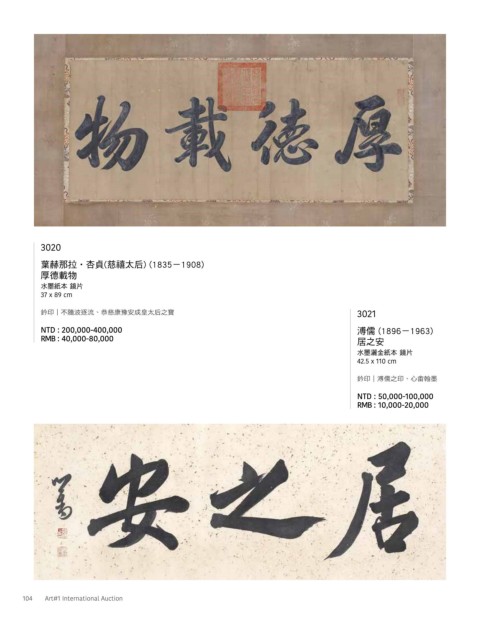 厚德載物
3020
葉赫那拉・杏貞(慈禧太后) (1835－1908)
厚德載物
水墨紙本 鏡片
37 x 89 cm
鈐印｜不隨波逐流、恭慈康豫安成皇太后之寶
NTD : 200,000-400,000
RMB : 40,000-80,000
3021
溥儒 (1896－1963)
居之安
水墨灑金紙本 鏡片
42.5 x 110 cm
鈐印｜溥儒之印、心畬翰墨
NTD : 50,000-100,000
RMB : 10,000-20,000
居之安
心畬
104 Art#1 International Auction